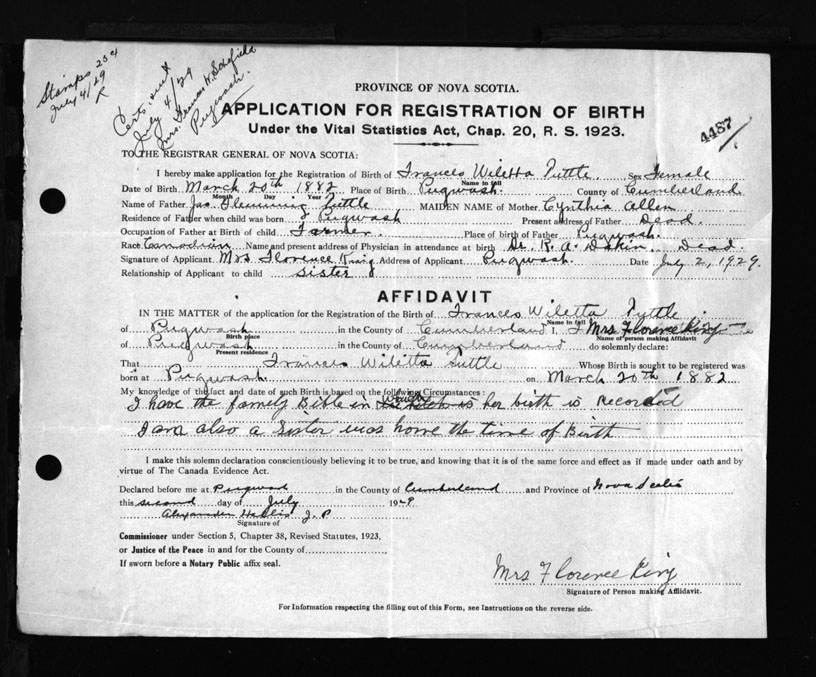 Stamps 23¢
July 4/29
R
Certs. sent
July 4/29
Mrs. Frances W. Schofield
Pugwash.
4487
PROVINCE OF NOVA SCOTIA.
APPLICATION FOR REGISTRATION OF BIRTH
Under the Vital Statistics Act, Chap. 20, R. S. 1923.
TO THE REGISTRAR GENERAL OF NOVA SCOTIA:
I hereby make application for the Registration of Birth of Frances Wiletta Tuttle. Sex Female
Name in full
Date of Birth March 20th 1882 Place of Birth Pugwash. County of Cumberland
Month Day Year
Name of Father Jas. Flemming Tuttle MAIDEN NAME of Mother Cynthia Allen
Residence of Father when child was born Pugwash Present address of Father Dead.
Occupation of Father at Birth of child Farmer. Place of birth of Father Pugwash.
Race Canadian Name and present address of Physician in attendance at birth Dr. R. A. Dakin. Dead.
Signature of Applicant Mrs Florence King Address of Applicant Pugwash. Date July 2, 1929.
Relationship of Applicant to child Sister
AFFIDAVIT
IN THE MATTER of the application for the Registration of the Birth of Frances Wiletta Tuttle
Name in full
of Pugwash in the County of Cumberland I, Mrs Florence King
Birth place Name of person making Affidavit
of Pugwash in the County of Cumberland do solemnly declare:
Present residence
That Frances Wiletta Tuttle Whose Birth is sought to be registered was
born at Pugwash. on March 20th 1882
My knowledge of the fact and date of such Birth is based on the following Circumstances:
I have the family Bible in which her birth is Recorded
I am also a Sister was home the time of Birth
I make this solemn declaration conscientiously believing it to be true, and knowing that it is of the same force and effect as if made under oath and by
virtue of The Canada Evidence Act.
Declared before me at Pugwash in the County of Cumberland and Province of Nova Scotia
this second day of July 1929
Alexander J. P
Signature of
Commissioner under Section 5, Chapter 38, Revised Statutes, 1923,
or Justice of the Peace in and for the County of
If sworn before a Notary Public affix seal.
Mrs Florence King
Signature of Person making Affidavit.
For Information respecting the filling out of this Form, see Instructions on the reverse side.